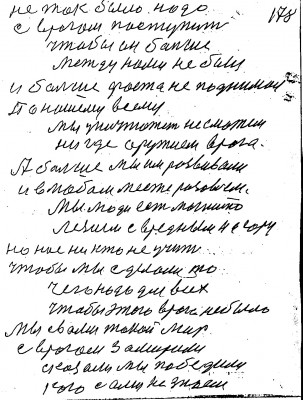 не так было надо 178
с врагом поступить
чтобы он больше
между нами не был
и больше хвоста не поднимал
По нашему всему
мы уничтожить не сможем
ни где оружием врага.
А больше мы им развивали
и в любом месте разовьем.
Мы люди
лезим с вредным и в гору
но нас ни кто не учит
чтобы мы сделали то
чего надо для всех
чтобы этого врага не было
Мы с вами такой мир
с врагом замирили
сказали мы победили
кого сами не знаем